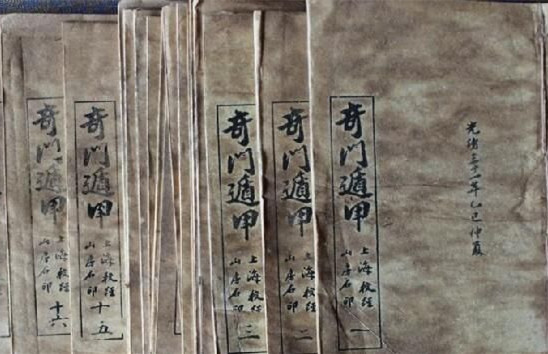 光緒三十一年乙巳仲夏
奇門遁甲
上海校經
山房石印
一
奇門遁甲
上海校經
山房石印
二
奇門遁甲
上海校經
山房石印
三
奇門遁甲
上海校經
山房石印
十五
奇門遁甲
上海校經
山房石印
十六